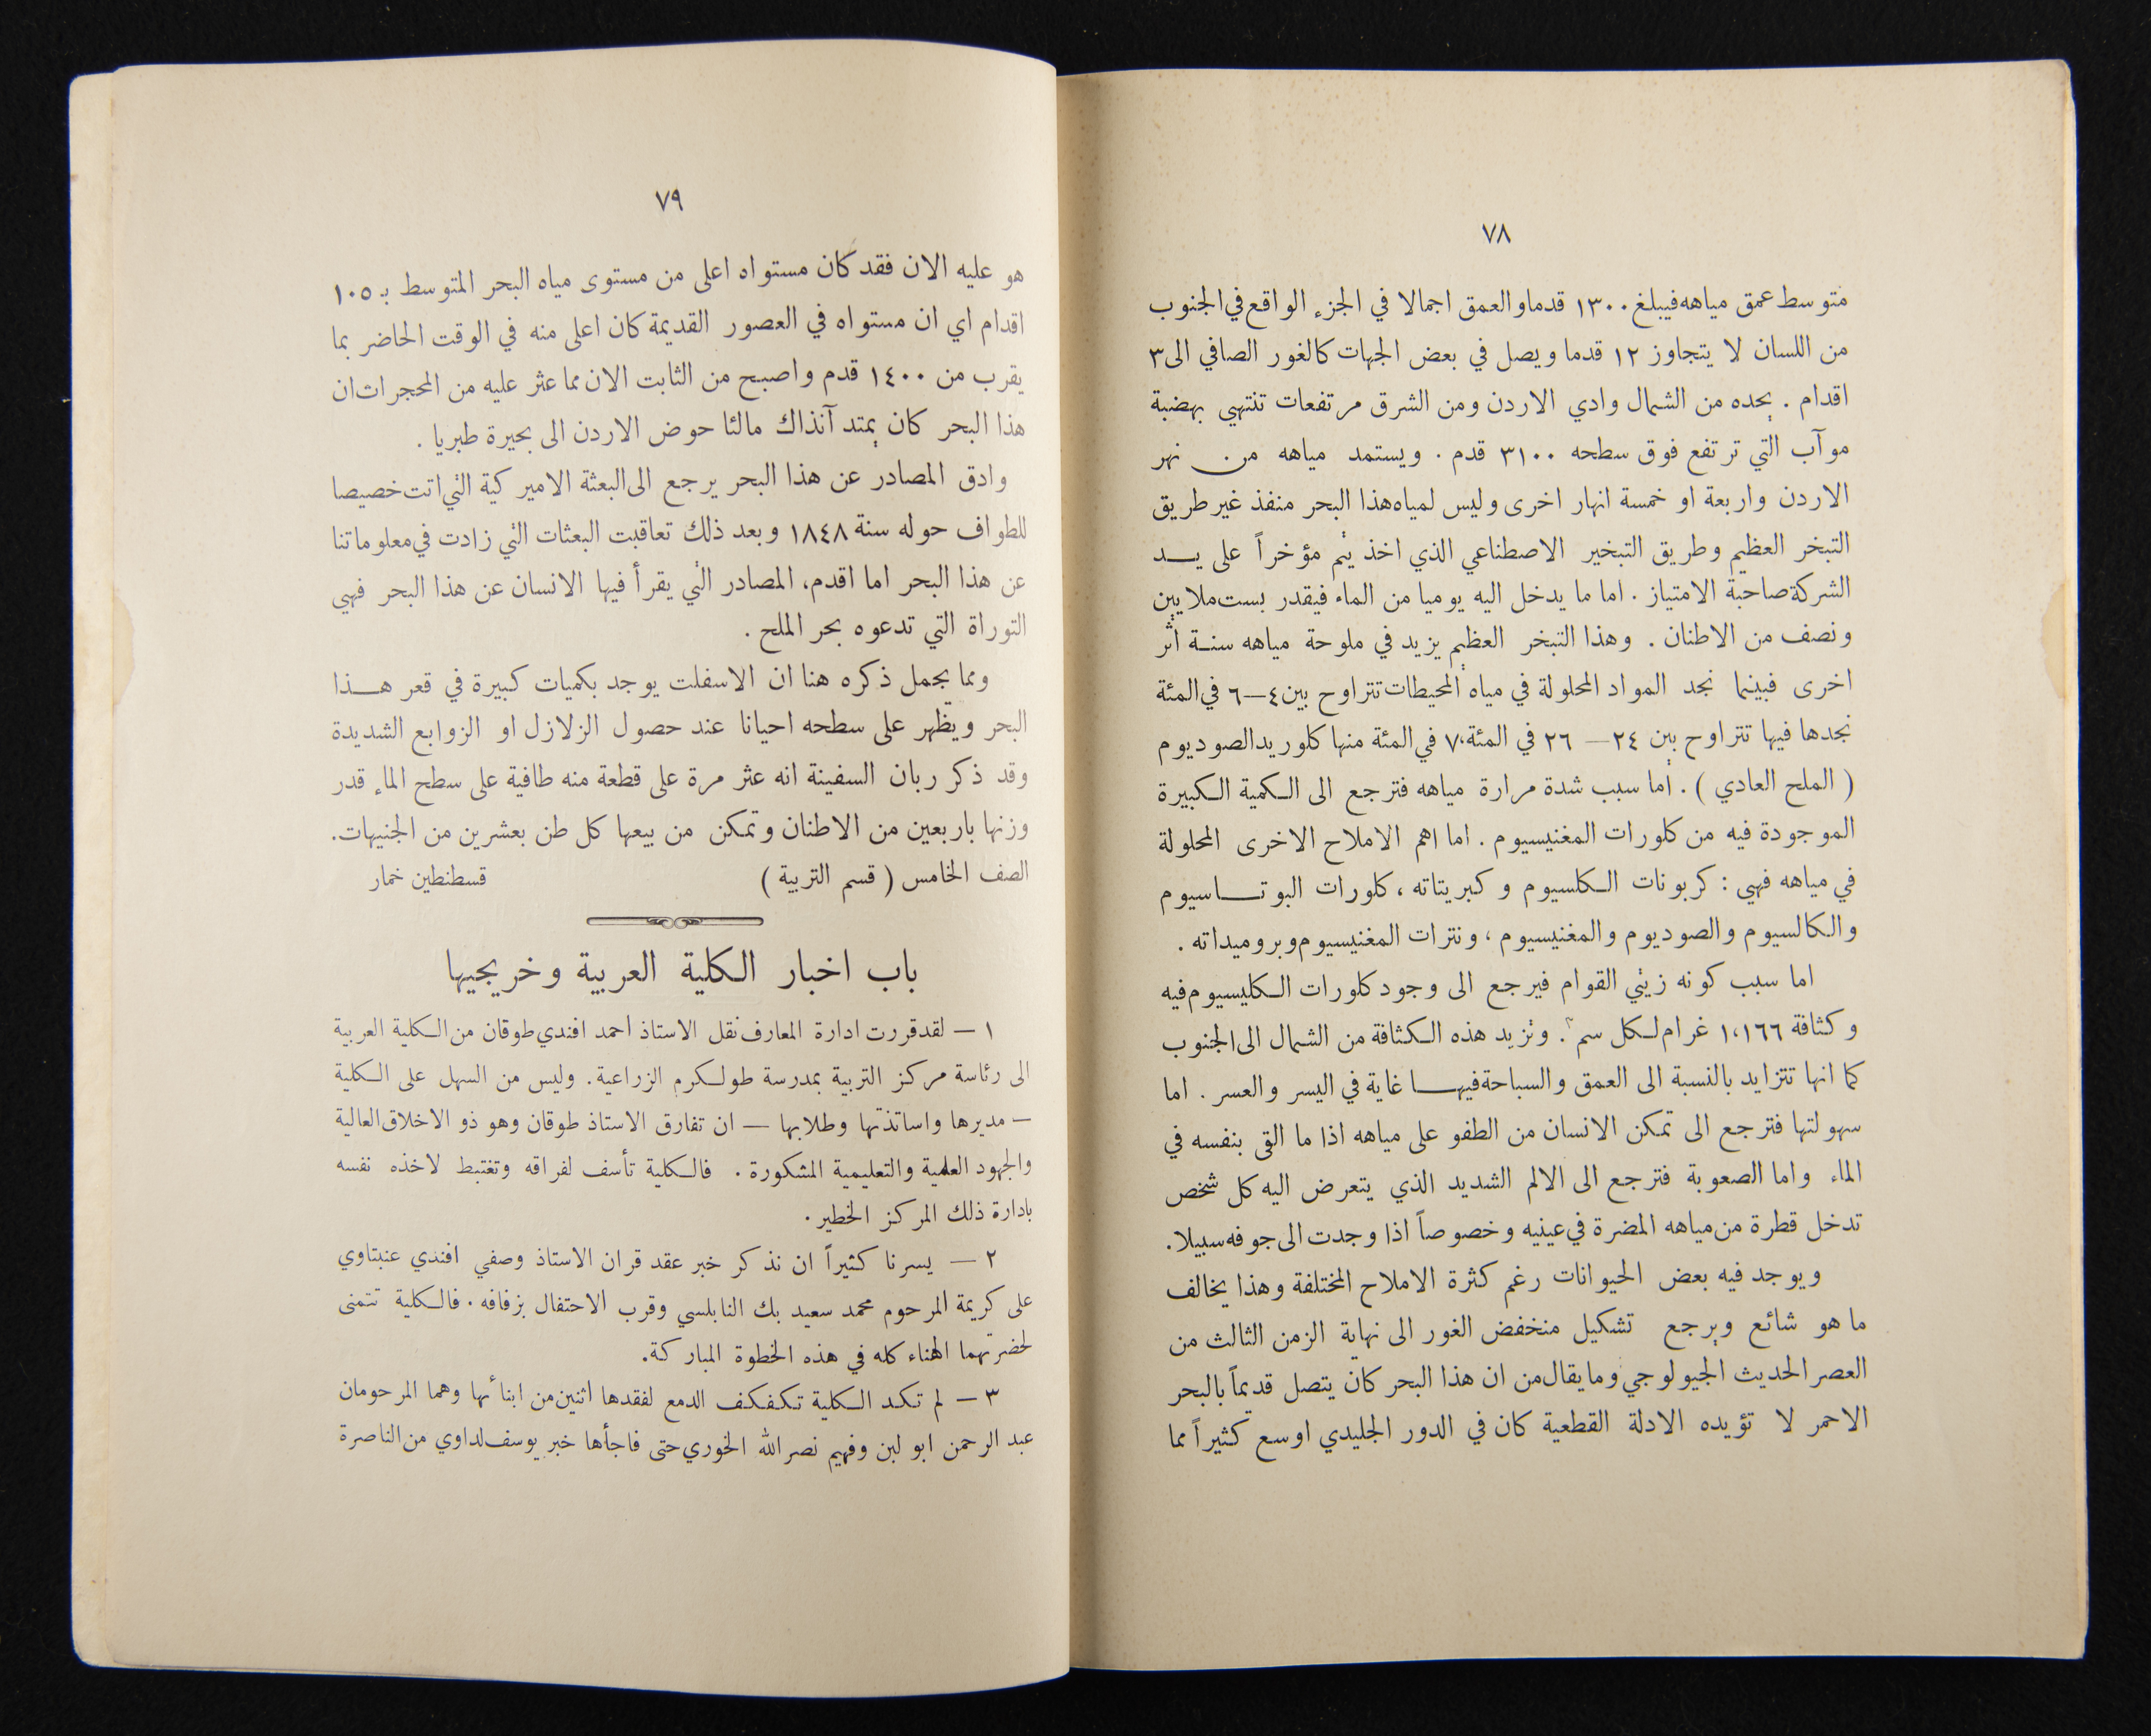 ٧٨
متوسط عمق مياهه فيبلغ ١٣٠٠ قدما والعمق اجمالا في الجزء الواقع في الجنوب
من اللسان لا يتجاوز ١٢ قدما ويصل في بعض الجهات كالغور الصافي الى ٣
اقدام . يحده من الشمال وادي الاردن ومن الشرق مرتفعات تنتهي بهضبة
موآب التي ترتفع فوق سطحه ٣١٠٠ قدم . ويستمد مياهه من نهر
الاردن واربعة او خمسة انهار اخرى وليس لمياه هذا البحر منفذ غير طريق
التبخر العظيم وطريق التبخير الاصطناعي الذي اخذ يتم مؤخراً على يد
الشركة صاحبة الامتياز . اما ما يدخل اليه يوميا من الماء فيقدر بست ملايين
ونصف من الاطنان . وهذا التبخر العظيم يزيد في ملوحة مياهه سنة اثر
اخرى فبينما نجد المواد المحلولة في مياه المحيطات تتراوح بين ٤ — ٦ في المئة
نجدها فيها تتراوح بين ٢٤ — ٢٦ في المئة، ٧ في المئة منها كلوريد الصوديوم
( الملح العادي ) . اما سبب شدة مرارة مياهه فترجع الى الكمية الكبيرة
الموجودة فيه من كلورات المغنيسيوم . اما اهم الاملاح الاخرى المحلولة
في مياهه فهي : كربونات الكلسيوم وكبريتاته ، كلورات البوتاسيوم
والكالسيوم والصوديوم والمغنيسيوم ، ونترات المغنيسيوم وبروميداته .
اما سبب كونه زيتي القوام فيرجع الى وجود كلورات الكليسيوم فيه
وكثافة ١،١٦٦ غرام لكل سم٣ . وتزيد هذه الكثافة من الشمال الى الجنوب
كما انها تتزايد بالنسبة الى العمق والسباحة فيها غاية في اليسر والعسر . اما
سهولتها فترجع الى تمكن الانسان من الطفو على مياهه اذا ما القى بنفسه في
الماء واما الصعوبة فترجع الى الالم الشديد الذي يتعرض اليه كل شخص
تدخل قطرة من مياهه المضرة في عينيه وخصوصاً اذا وجدت الى جوفه سبيلا.
ويوجد فيه بعض الحيوانات رغم كثرة الاملاح المختلفة وهذا يخالف
ما هو شائع ويرجع تشكيل منخفض الغور الى نهاية الزمن الثالث من
العصر الحديث الجيولوجي وما يقال من ان هذا البحر كان يتصل قديماً بالبحر
الاحمر لا تؤيده الادلة القطعية كان في الدور الجليدي اوسع كثيراً مما
٧٩
هو عليه الان فقد كان مستواه اعلى من مستوى مياه البحر المتوسط بـ ١٠٥
اقدام اي ان مستواه في العصور القديمة كان اعلى منه في الوقت الحاضر بما
يقرب من ١٤٠٠ قدم واصبح من الثابت الان مما عثر عليه من المحجرات ان
هذا البحر كان يمتد آنذاك مالئا حوض الاردن الى بحيرة طبريا .
وادق المصادر عن هذا البحر يرجع الى البعثة الاميركية التي اتت خصيصا
للطواف حوله سنة ١٨٤٨ وبعد ذلك تعاقبت البعثات التي زادت في معلوماتنا
عن هذا البحر اما اقدم، المصادر التي يقرأ فيها الانسان عن هذا البحر فهي
التوراة التي تدعوه بحر الملح .
ومما يجمل ذكره هنا ان الاسفلت يوجد بكميات كبيرة في قعر هذا
البحر ويظهر على سطحه احيانا عند حصول الزلازل او الزوابع الشديدة
وقد ذكر ربان السفينة انه عثر مرة على قطعة منه طافية على سطح الماء قدر
وزنها باربعين من الاطنان وتمكن من بيعها كل طن بعشرين من الجنيهات.
الصف الخامس ( قسم التربية ) قسطنطين خمار
باب اخبار الكلية العربية وخريجيها
١ — لقد قررت ادارة المعارف نقل الاستاذ احمد افندي طوقان من الكلية العربية
الى رئاسة مركز التربية بمدرسة طولكرم الزراعية. وليس من السهل على الكلية
— مديرها واساتذتها وطلابها — ان تفارق الاستاذ طوقان وهو ذو الاخلاق العالية
والجهود العلمية والتعليمية المشكورة . فالكلية تأسف لفراقه وتغتبط لاخذه نفسه
بادارة ذلك المركز الخطير.
٢ — يسرنا كثيراً ان نذكر خبر عقد قران الاستاذ وصفي افندي عنبتاوي
على كريمة المرحوم محمد سعيد بك النابلسي وقرب الاحتفال بزفافه . فالكلية تتمنى
لحضرتهما الهناء كله في هذه الخطوة المباركة.
٣ — لم تكد الكلية تكفكف الدمع لفقدها اثنين من ابنائها وهما المرحومان
عبد الرحمن ابو لبن وفهيم نصر الله الخوري حتى فاجأها خبر يوسف لداوي من الناصرة